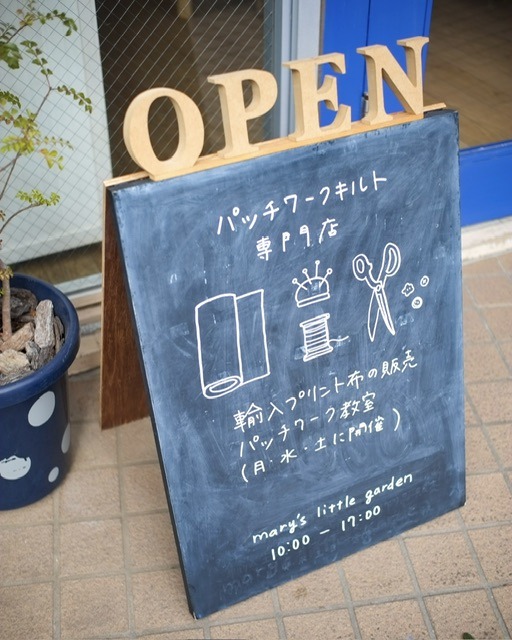 OPEN
パッチワークキルト
専門店
輸入プリント布の販売
パッチワーク教室
(月・水・土に開催)
mary's little garden
10:00 - 17:00